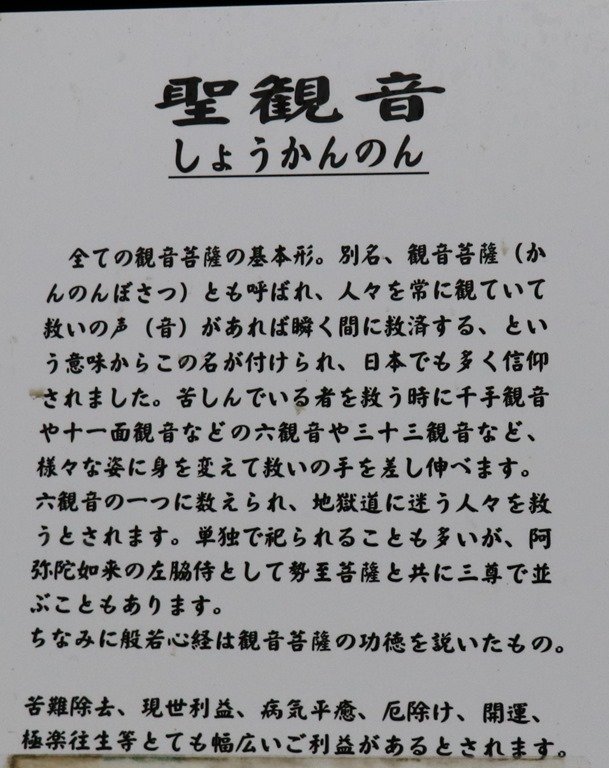 聖観音
しょうかんのん
全ての観音菩薩の基本形。別名、観音菩薩（か
んのんぼさつ）とも呼ばれ、人々を常に観ていて
救いの声（音）があれば瞬く間に救済する、とい
う意味からこの名が付けられ、日本でも多く信仰
されました。苦しんでいる者を救う時に千手観音
や十一面観音などの六観音や三十三観音など、
様々な姿に身を変えて救いの手を差し伸べます。
六観音の一つに数えられ、地獄道に迷う人々を救
うとされます。単独で祀られることも多いが、阿
弥陀如来の左脇侍として勢至菩薩と共に三尊で並
ぶこともあります。
ちなみに般若心経は観音菩薩の功徳を説いたもの。
苦難除去、現世利益、病気平癒、厄除け、開運、
極楽往生等とても幅広いご利益があるとされます。